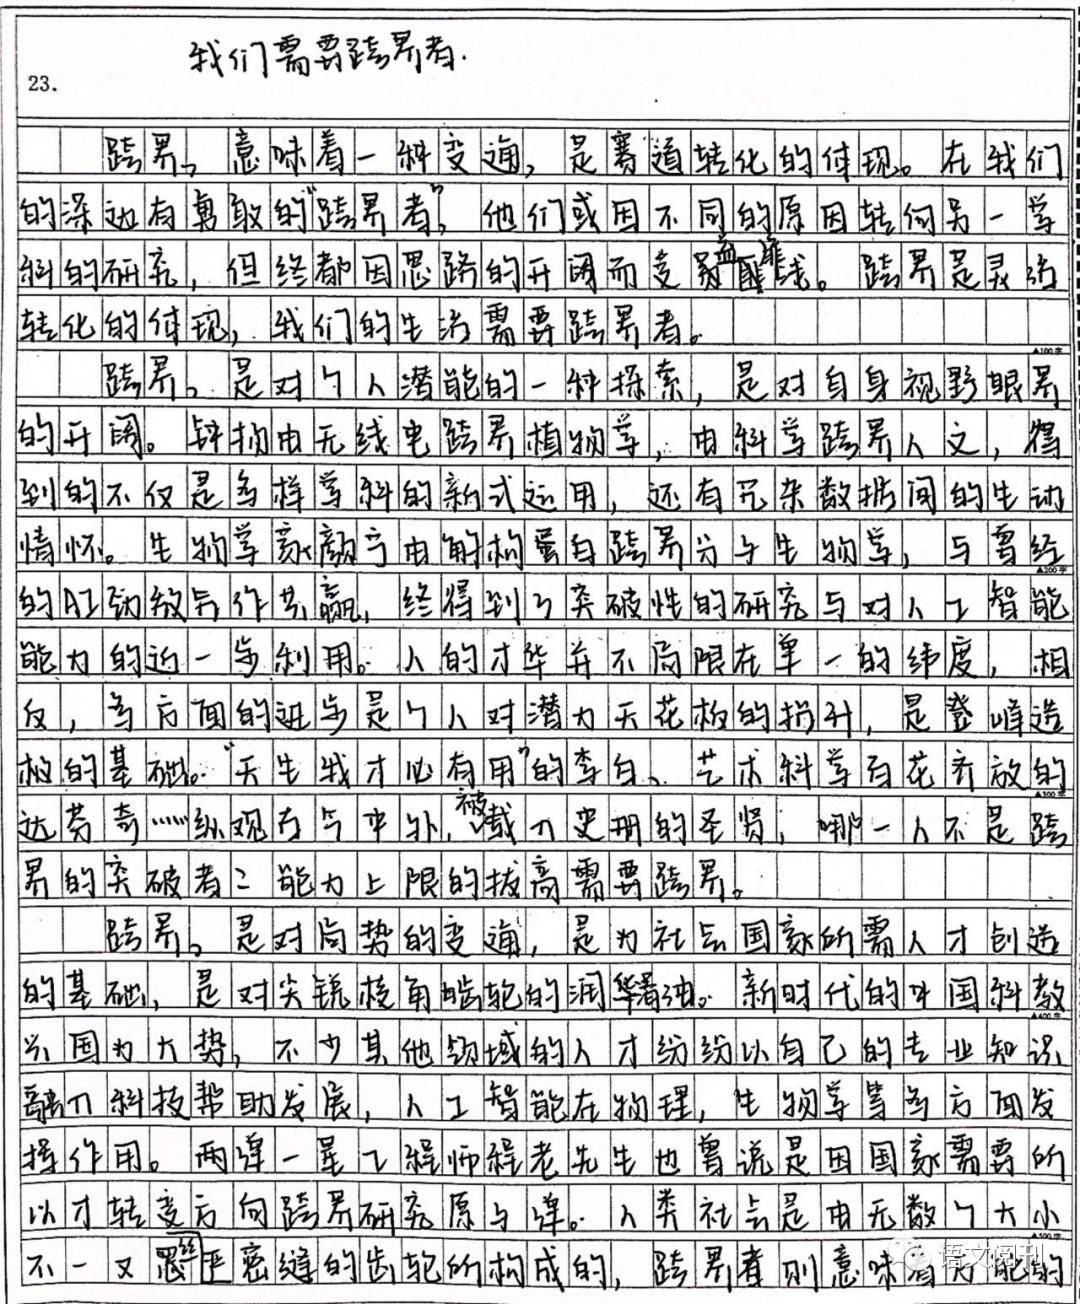 我们需要跨界者.
23.
跨界，意味着一种变通，是赛道转化的体现。在我们
的深边有勇敢的“跨界者”，他们或因不同的原因转向另一学
科的研究，但终都因思路的开阔而受益匪浅。跨界是灵活
转化的体现，我们的生活需要跨界者。
▲100字
跨界，是对个人潜能的一种探索，是对自身视野眼界
的开阔。钟扬由无线电跨界植物学，由科学跨界人文，得
到的不仅是多样学科的新式运用，还有冗杂数据间的生动
情怀。生物学家颜宁由解构蛋白跨界分子生物学，与曾经
▲200字
的AI劲敌合作共赢，终得到了突破性的研究与对人工智能
能力的近一步利用。人的才华并不局限在单一的纬度，相
反，多方面的进步是个人对潜力天花板的拐升，是登峰造
极的基础。“天生我才必有用”的李白、艺术科学百花齐放的
▲300字
达芬奇……纵观古今中外，被载入史册的圣贤，哪一人不是跨
界的突破者？能力上限的拔高需要跨界。
跨界，是对局势的变通，是为社会国家所需人才创造
的基础，是对尖锐棱角齿轮的润滑油。新时代的中国科教
▲400字
兴国为大势，不少其他领域的人才纷纷以自己的专业知识
融入科技帮助发展，人工智能在物理，生物学等多方面发
挥作用。两弹一星工程师程老先生也曾说是因国家需要所
以才转变方向跨界研究原子弹。人类社会是由无数个大小
▲500字
不一又丝严密缝的齿轮所构成的，跨界者则意味着为能的
语文阅刊